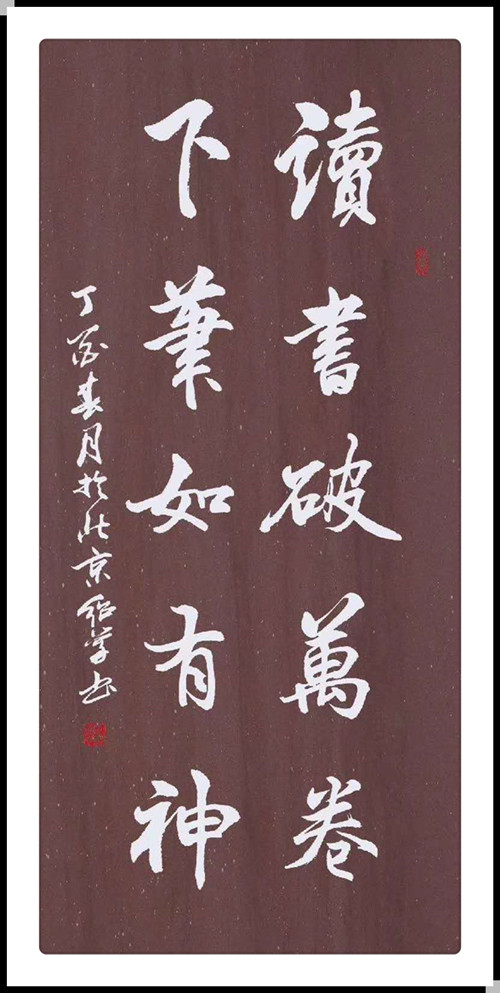 讀書破萬卷
下筆如有神
丁酉春月於北京紹學書